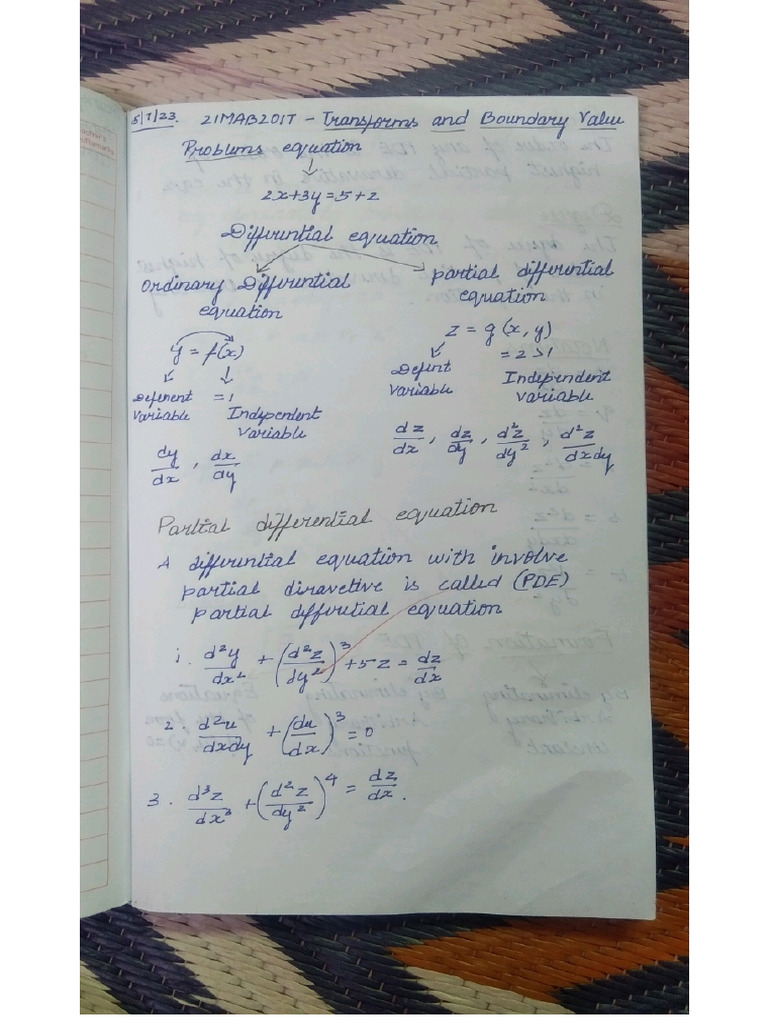 5/7/23. 21MAB201T - Transforms and Boundary Value
Problems equation
↓
2x+3y=5+z
Differential equation
Ordinary Differential equation
y = f(x)
Depenent variable
= 1
Independent Variable
dy/dx , dx/dy
partial differential equation
z = g(x, y)
= 2 > 1
Depent variable
Independent variable
dz/dx , dz/dy , d²z/dy² , d²z/dxdy
Partial differential equation
A differential equation with involve
partial diravetive is called (PDE)
partial differtial equation
1. d²y/dx² + (d²z/dy²)³ + 5z = dz/dx
2. d²u/dxdy + (du/dx)³ = 0
3. d³z/dx³ + (d²z/dy²)⁴ = dz/dx.